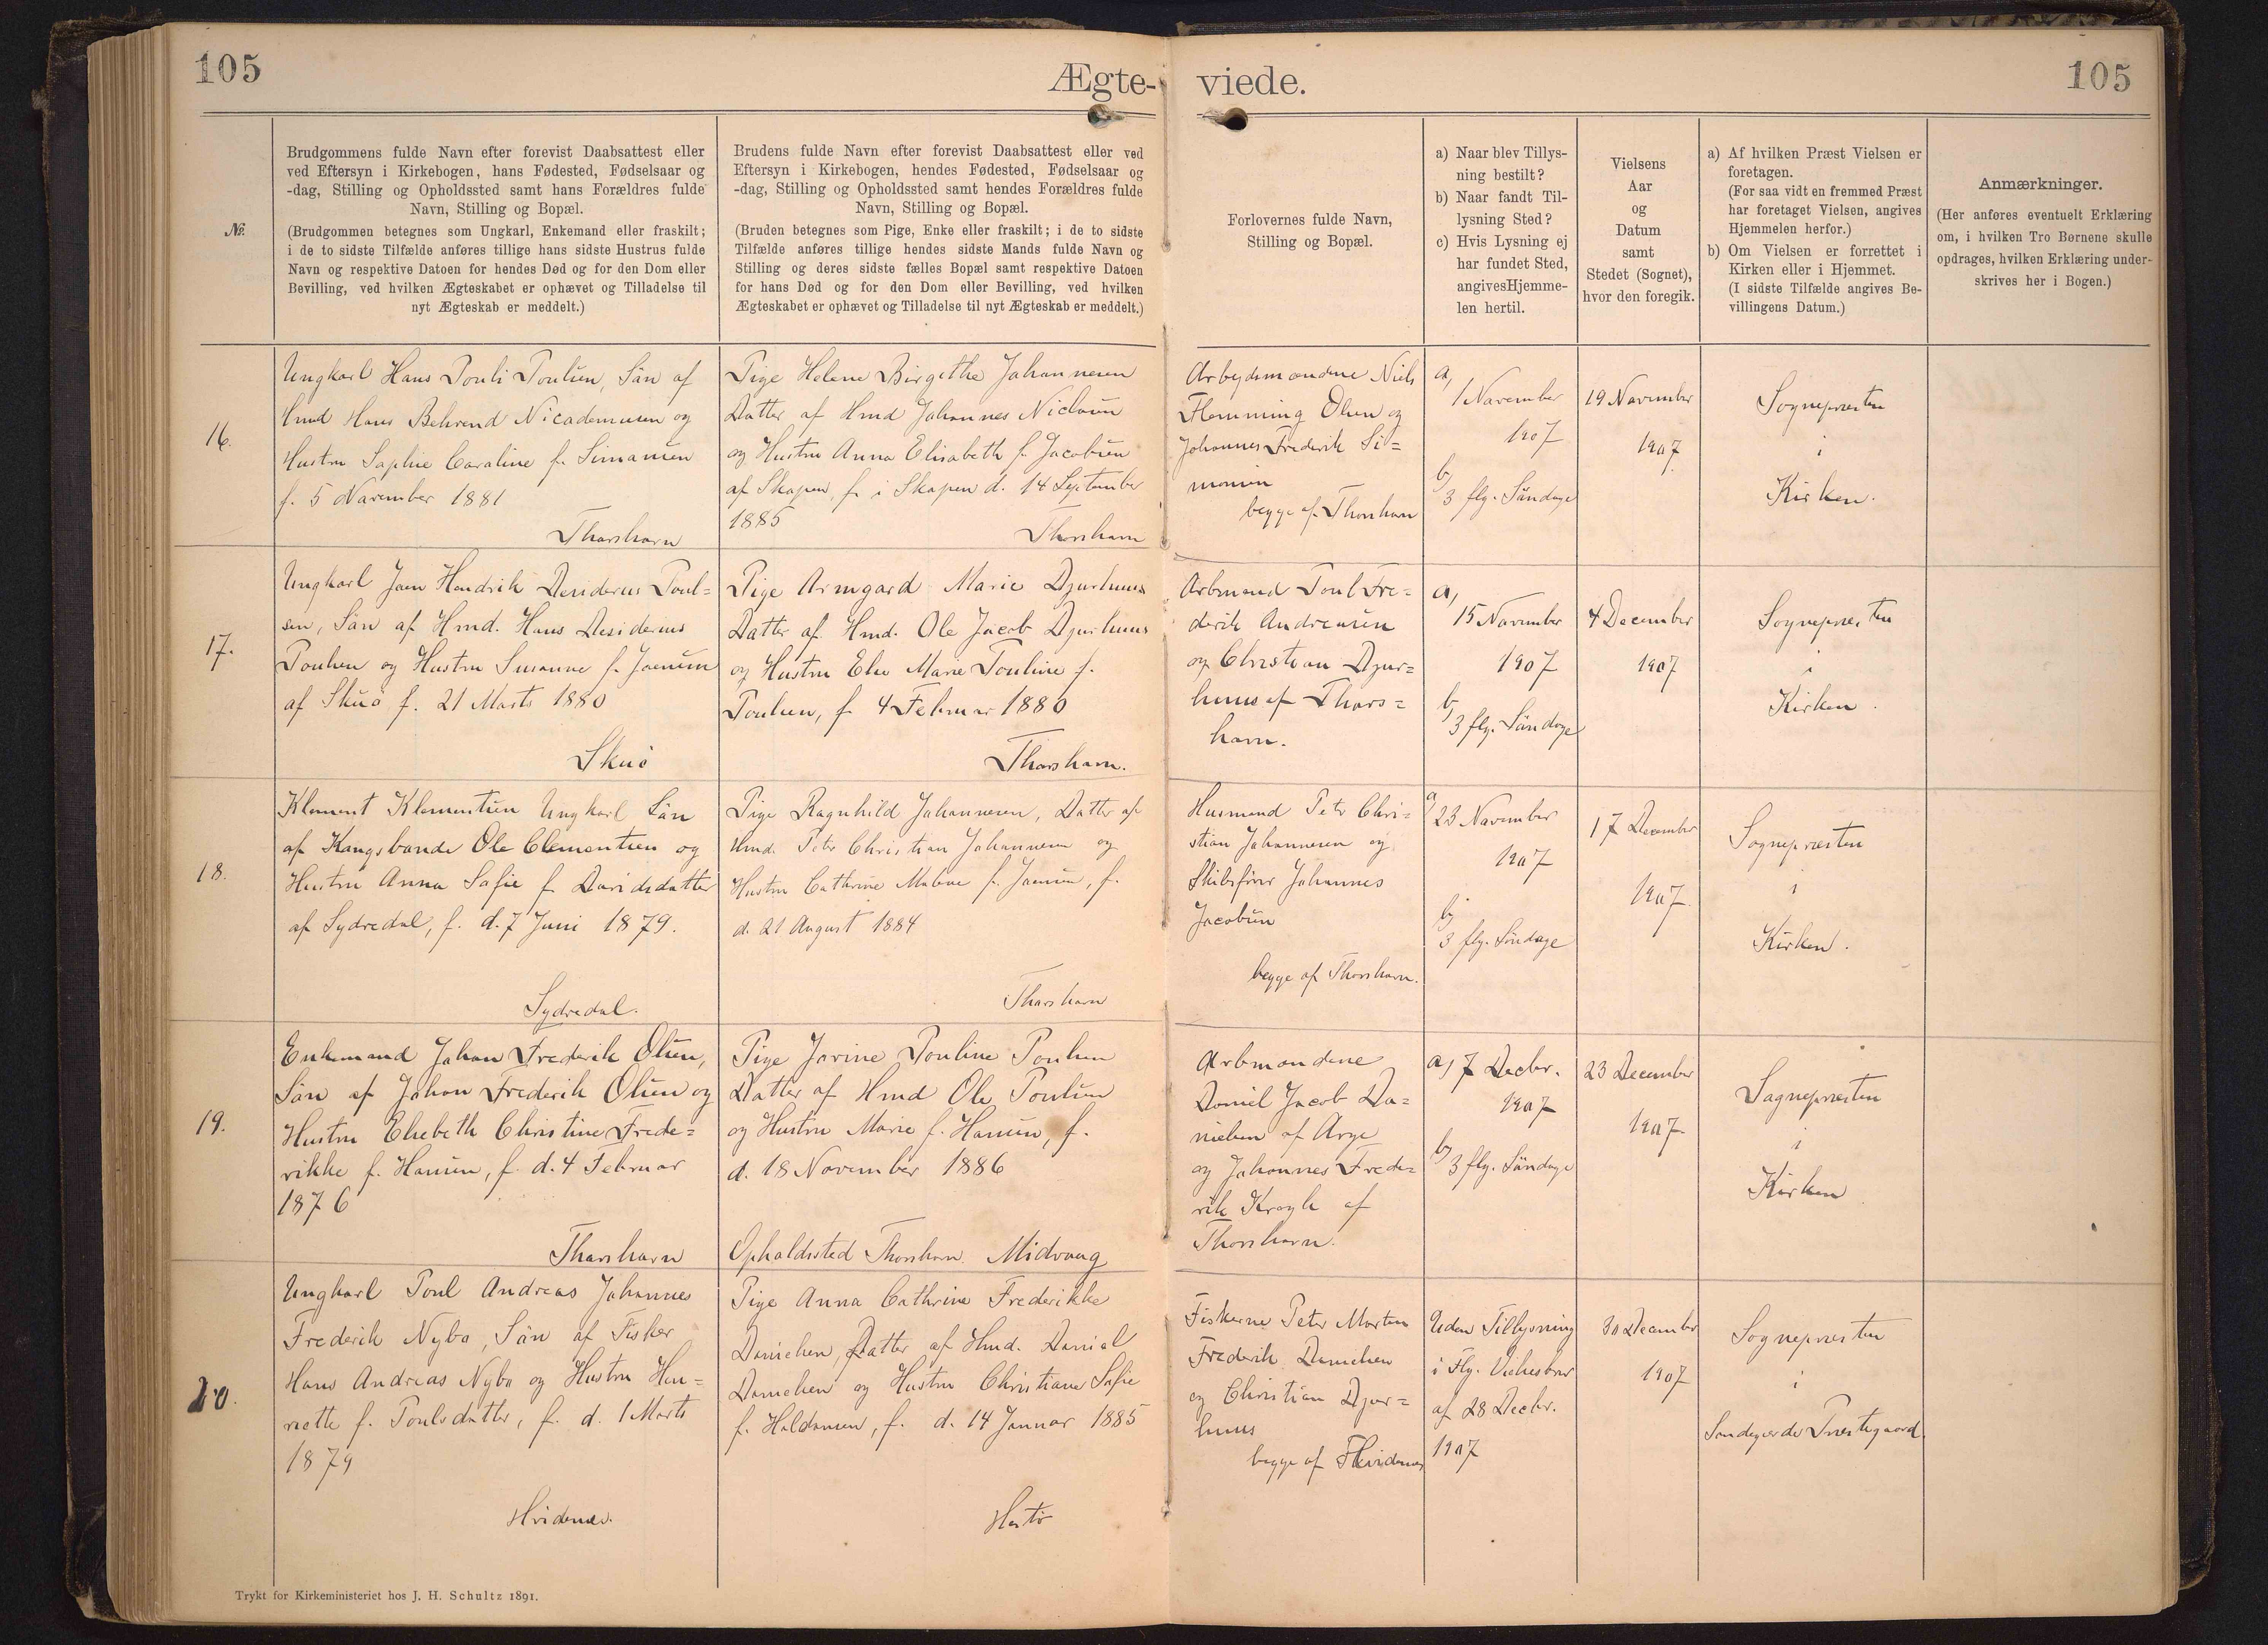 105
Ægte-
viede.
105
№.
Brudgommens fulde Navn efter forevist Daabsattest eller
ved Eftersyn i Kirkebogen, hans Fødested, Fødselsaar og
-dag, Stilling og Opholdssted samt hans Forældres fulde
Navn, Stilling og Bopæl.
(Brudgommen betegnes som Ungkarl, Enkemand eller fraskilt;
i de to sidste Tilfælde anføres tillige hans sidste Hustrus fulde
Navn og respektive Datoen for hendes Død og for den Dom eller
Bevilling, ved hvilken Ægteskabet er ophævet og Tilladelse til
nyt Ægteskab er meddelt.)
Brudens fulde Navn efter forevist Daabsattest eller ved
Eftersyn i Kirkebogen, hendes Fødested, Fødselsaar og
-dag, Stilling og Opholdssted samt hendes Forældres fulde
Navn, Stilling og Bopæl.
(Bruden betegnes som Pige, Enke eller fraskilt; i de to sidste
Tilfælde anføres tillige hendes sidste Mands fulde Navn og
Stilling og deres sidste fælles Bopæl samt respektive Datoen
for hans Død og for den Dom eller Bevilling, ved hvilken
Ægteskabet er ophævet og Tilladelse til nyt Ægteskab er meddelt.)
Forlovernes fulde Navn,
Stilling og Bopæl.
a) Naar blev Tillys-
ning bestilt?
b) Naar fandt Til-
lysning Sted?
c) Hvis Lysning ej
har fundet Sted,
angivesHjemme-
len hertil.
Vielsens
Aar
og
Datum
samt
Stedet (Sognet),
hvor den foregik.
a) Af hvilken Præst Vielsen er
foretagen.
(For saa vidt en fremmed Præst
har foretaget Vielsen, angives
Hjemmelen herfor.)
b) Om Vielsen er forrettet i
Kirken eller i Hjemmet.
(I sidste Tilfælde angives Be-
villingens Datum.)
Anmærkninger.
(Her anføres eventuelt Erklæring
om, i hvilken Tro Børnene skulle
opdrages, hvilken Erklæring under-
skrives her i Bogen.)
16.
Ungkarl Hans Pouli Poulsen, Sön af
Hmd Hans Behrend Nicodemusen og
Hustru Sophie Caroline f. Simonsen
f. 5 November 1881
Thorshavn
Pige Helene Birgithe Johannesen
Datter af Hmd Johannes Niclasen
og Hustru Anna Elisabeth f. Jacobsen
af Skopen, f. i Skopen d. 14 September
1885
Thorshavn
Arbejdsmændene Niels
Flemming Olsen og
Johannes Frederik Si=
monsen
begge af Thorshavn
a,
1 November
1907
b,
3 flg. Söndage
19 November
1907
Sognepræsten
i
Kirken.
17.
Ungkarl Joen Hendrik Desiderius Poul=
sen, Sön af Hmd. Hans Desiderius
Poulsen og Hustru Susanne f. Joensen
af Skuö f. 21 Marts 1880
Skuö
Pige Armgard Marie Djurhuus
Datter af Hmd. Ole Jacob Djurhuus
og Hustru Else Marie Pouline f.
Poulsen, f 4 Februar 1880
Thorshavn.
Arbmænd Poul Fre=
derik Andreasen
og Christian Djur=
huus af Thors=
havn.
a,
15 November
1907
b,
3 flg. Söndage
4 December
1907
Sognepræsten
i
Kirken.
18.
Klement Klementsen Ungkarl Sön
af Kongsbonde Ole Clementsen og
Hustru Anna Sofie f. Davidsdatter
af Sydredal, f. d. 7 Juni 1879.
Sydredal.
Pige Ragnhild Johannesen, Datter af
Hmd. Peter Christian Johannesen og
Hustru Cathrine Malene f. Joensen, f.
d. 21 August 1884
Thorshavn
Husmand Peter Chri=
stian Johannesen og
Skibsfører Johannes
Jacobsen
begge af Thorshavn.
a,
23 November
1907
b,
3 flg. Söndage
17 December
1907.
Sognepræsten
i
Kirken.
19.
Enkemand Johan Frederik Olsen,
Sön af Johan Frederik Olsen og
Hustru Elsebeth Christine Frede=
rikke f. Hansen, f. d. 4 Februar
1876
Thorshavn
Pige Jovine Pouline Poulsen
Datter af Hmd Ole Poulsen
og Hustru Marie f. Hansen, f.
d. 18 November 1886
Opholdssted Thorshavn Midvaag
Arbmændene
Daniel Jacob Da=
nielsen af Arge
og Johannes Frede=
rik Krogh af
Thorshavn.
a, 7 Decbr.
1907
b,
3 flg. Söndage
23 December
1907
Sognepræsten
i
Kirken
20.
Ungkarl Poul Andreas Johannes
Frederik Nybo, Sön af Fisker
Hans Andreas Nybo og Hustru Hen=
riette f. Poulsdatter, f. d. 1 Marts
1879
Hvidenæs.
Pige Anna Cathrine Frederikke
Danielsen, Datter af Hmd. Daniel
Danielsen og Hustru Christiane Sofie
f. Haldansen, f. d. 14 Januar 1885
Hestö
Fiskerne Peter Morten
Frederik Danielsen
og Christian Djur=
huus
begge af Hvidenæs
Uden Tillysning
i Flg. Vielsesbrev
af 28 Decbr.
1907
30 December
1907
Sognepræsten
i
Sandegærde Præstegaard.
Trykt for Kirkeministeriet hos J. H. Schultz 1891.